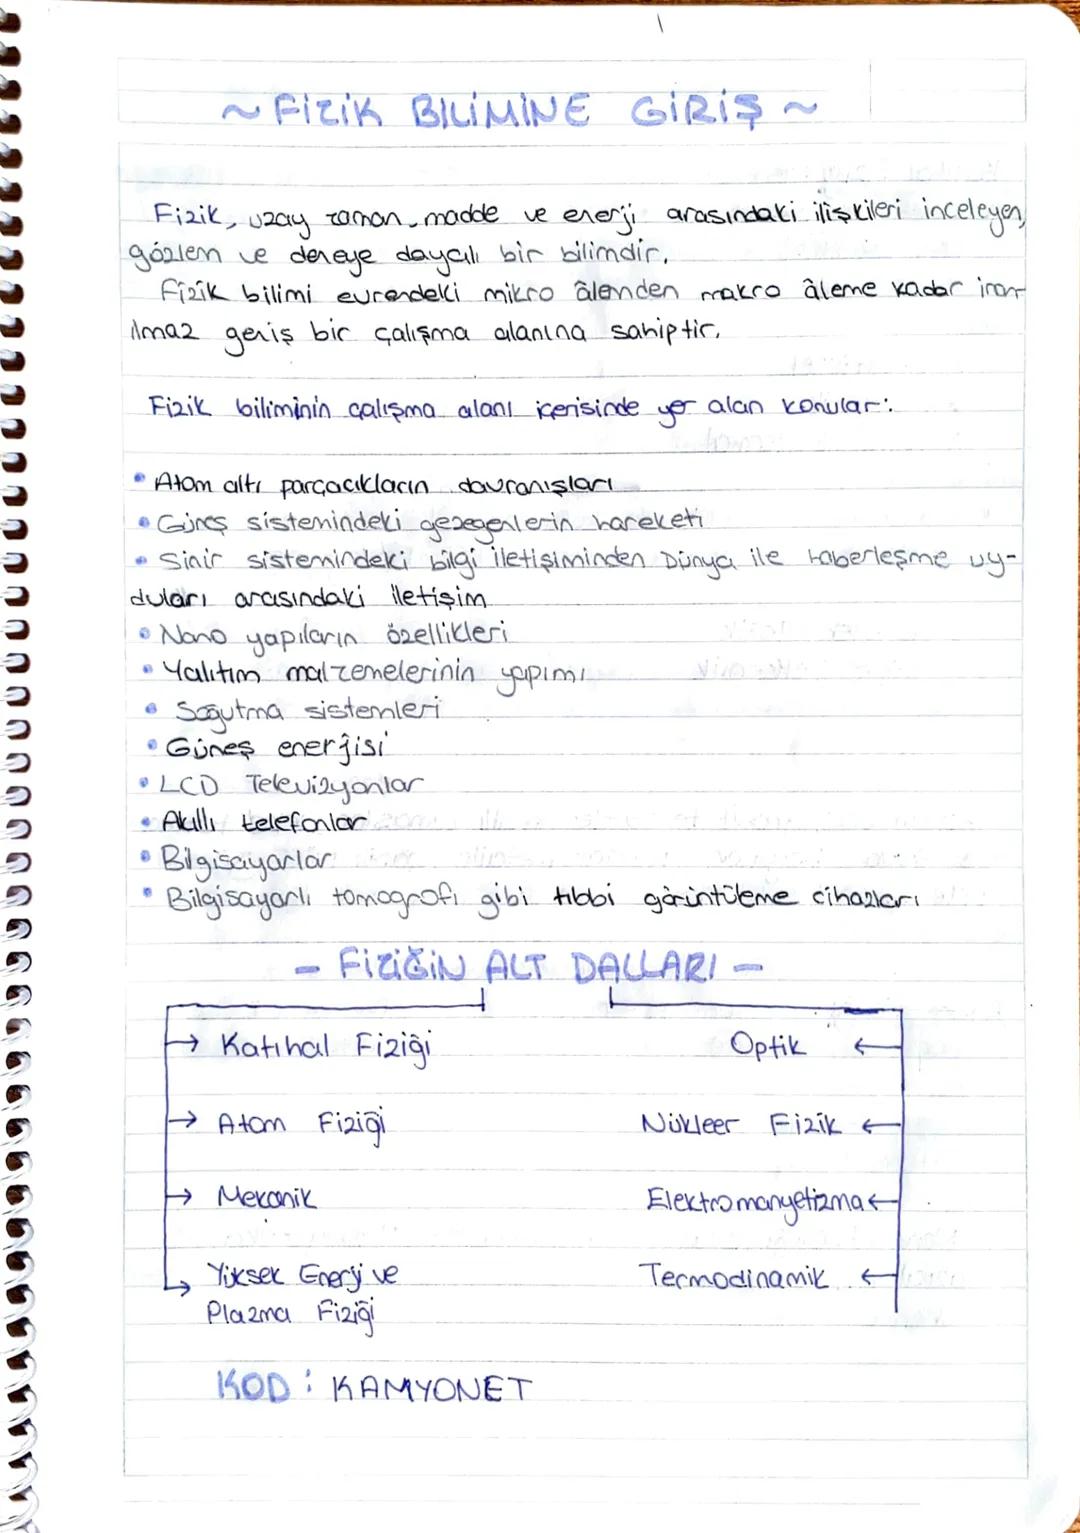 ~ FİZİK BİLİMİNE GİRİŞ ~
Fizik, uzay zaman, madde ve enerji arasındaki ilişkileri inceleyen,
gözlem ve deneye dayalı bir bilimdir.
Fizik bilimi evrendeki mikro âlemden makro âleme kadar inan-
ılmaz geniş bir çalışma alanına sahiptir.
Fizik biliminin çalışma alanı içerisinde yer alan konular:
• Atom altı parçacıkların davranışları
• Güneş sistemindeki gezegenlerin hareketi
• Sinir sistemindeki bilgi iletişiminden Dünya ile haberleşme uy-
duları arasındaki iletişim
• Nano yapıların özellikleri
• Yalıtım malzemelerinin yapımı
• Soğutma sistemleri
• Güneş enerjisi
• LCD Televizyonlar
• Akıllı telefonlar
• Bilgisayarlar
• Bilgisayarlı tomografi gibi tıbbi görüntüleme cihazları
- FİZİĞİN ALT DALLARI -
→ Katıhal Fiziği
Optik ←
→ Atom Fiziği
Nükleer Fizik ←
→ Mekanik
Elektromanyetizma ←
→ Yüksek Enerji ve
Plazma Fiziği
Termodinamik ←
KOD : KAMYONET